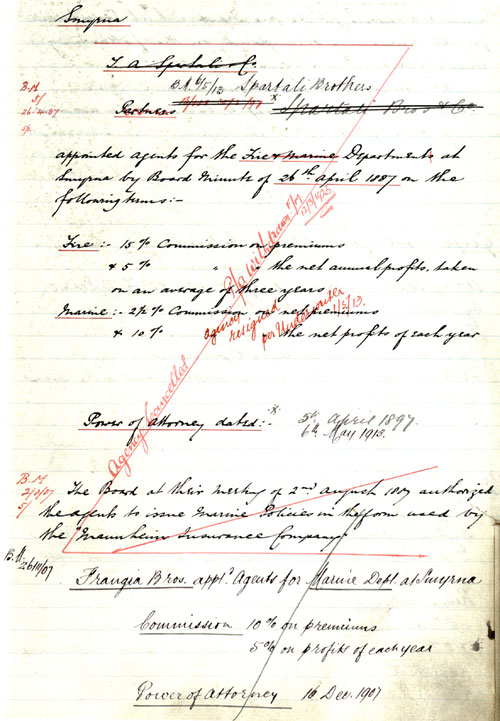 Smyrna
T. A. Spartali & Co.
B.M. 6/5/13 Spartali Brothers
B.M.
5/
26.4.87
Partners
Spartali Bros & Co.
appointed agents for the Fire & Marine Departments at
Smyrna by Board Minute of 26th April 1887 on the
following terms:-
P/A Withdrawn
12/5/1925
Fire :- 15 % Commission on premiums
& 5 % " " the net annual profits, taken
on an average of three years
Marine :- 2½ % Commission on net premiums
& 10 % the net profits of each year
agency resigned
per Underwriter
1/5/13.
Agency Cancelled
Power of Attorney dated :- x 5th April 1897.
6th May 1913.
B.M.
2/8/87
5/
The Board at their meeting of 2nd August 1887 authorized
the agents to issue Marine Policies in the form used by
the "Mannheim Insurance Company"
B.M. 26/11/07
Frangia Bros. appt'd Agents for Marine Dept. at Smyrna
Commission 10 % on premiums
5 % on profits of each year
Power of Attorney 16 Dec. 1907